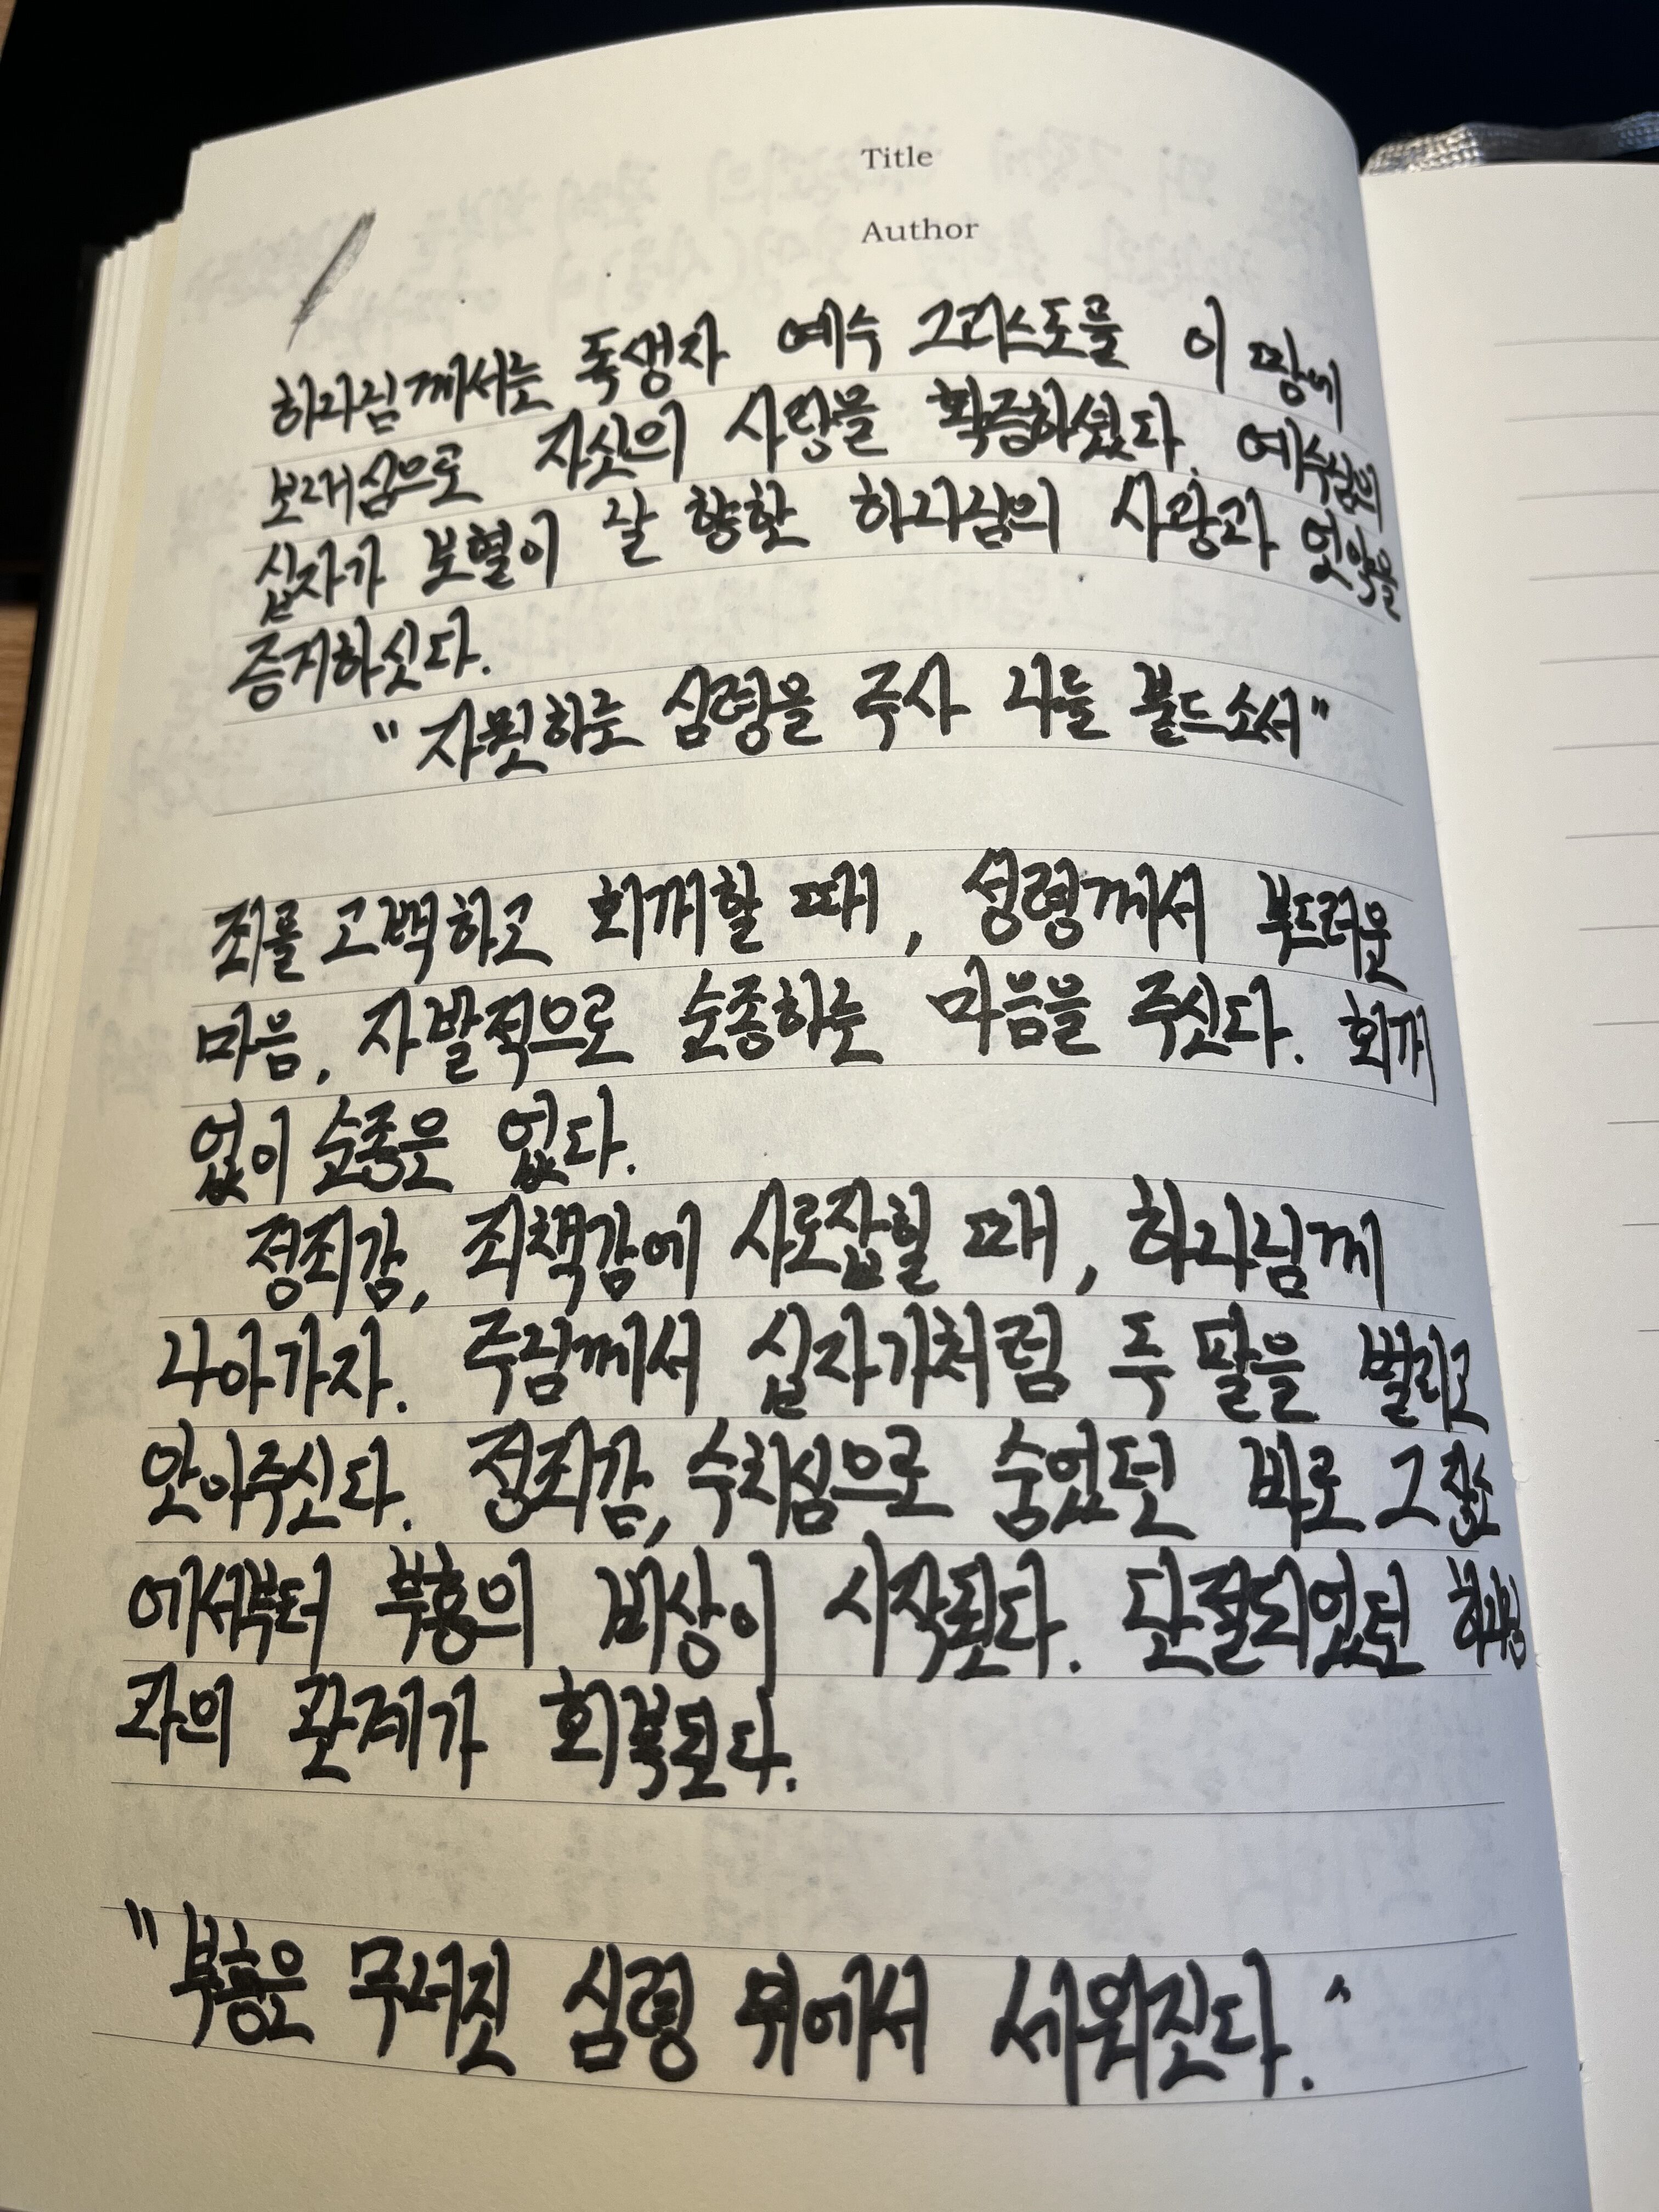 Title
Author
하나님께서는 독생자 예수 그리스도를 이 땅에
보내심으로 자신의 사랑을 확증하셨다. 예수님의
십자가 보혈이 날 향한 하나님의 사랑과 언약을
증거하신다.
"자원하는 심령을 주사 나를 붙드소서"
죄를 고백하고 회개할 때, 성령께서 부드러운
마음, 자발적으로 순종하는 마음을 주신다. 회개
없이 순종은 없다.
정죄감, 죄책감에 사로잡힐 때, 하나님께
나아가자. 주님께서 십자가처럼 두 팔을 벌리고
안아주신다. 정죄감, 수치심으로 숨었던 바로 그 장소
에서부터 부흥의 비상이 시작된다. 단절되었던 하나님
과의 관계가 회복된다.
"부흥은 무너진 심령 위에서 세워진다."